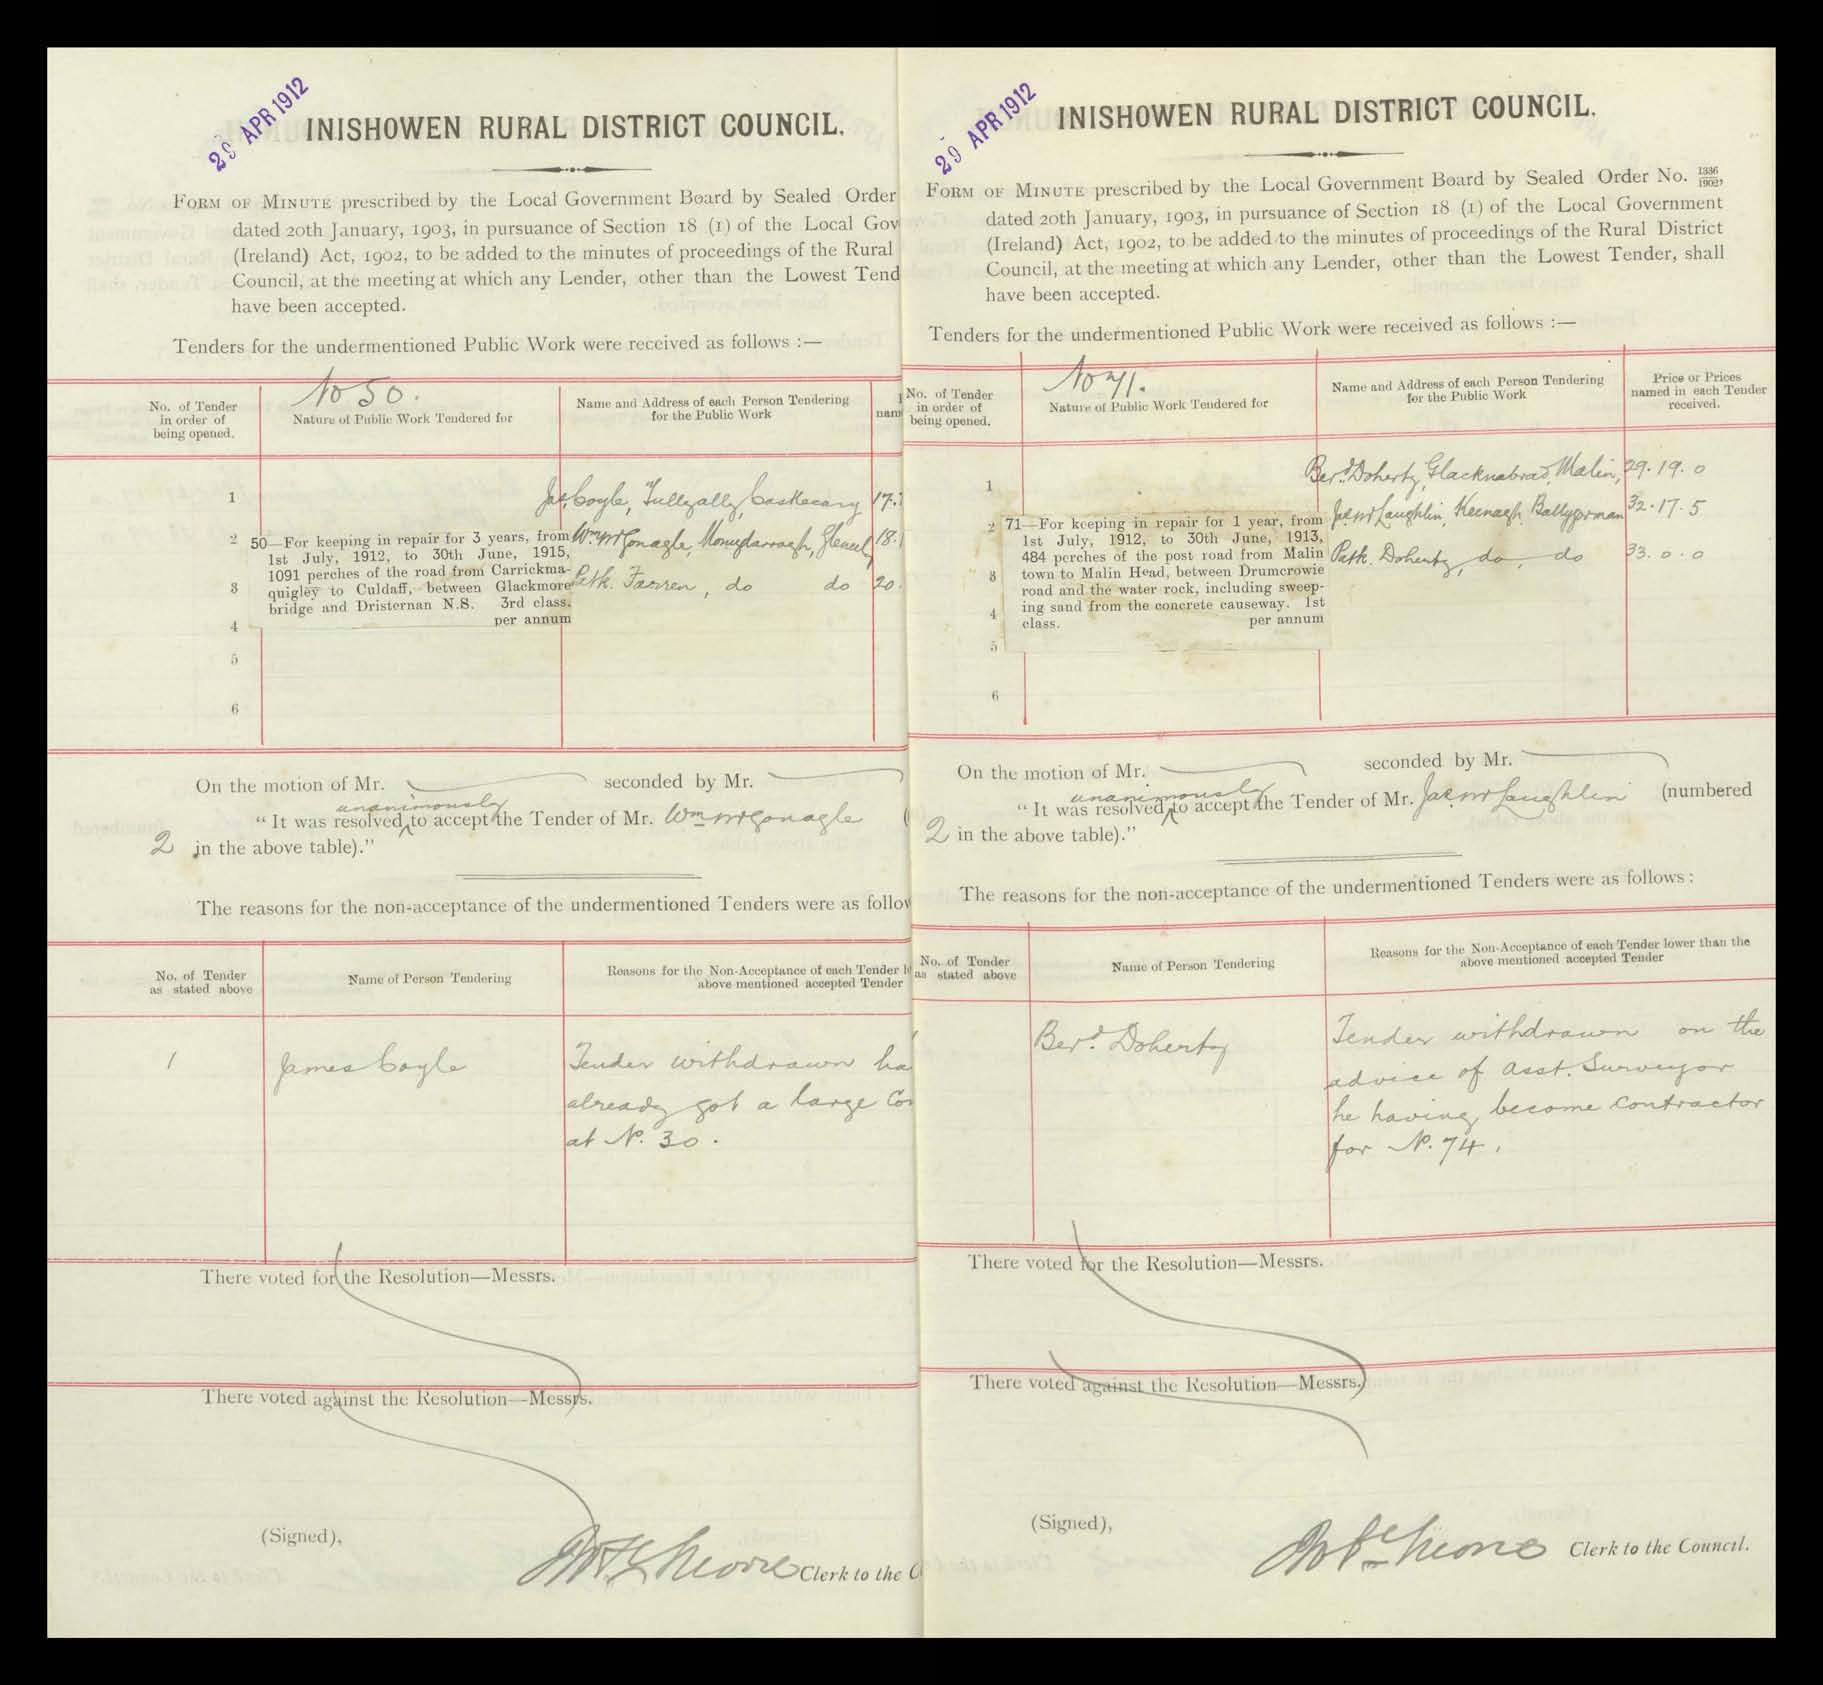 29 APR 1912
INISHOWEN RURAL DISTRICT COUNCIL.
FORM OF MINUTE prescribed by the Local Government Board by Sealed Order
dated 20th January, 1903, in pursuance of Section 18 (1) of the Local Gov
(Ireland) Act, 1902, to be added to the minutes of proceedings of the Rural
Council, at the meeting at which any Lender, other than the Lowest Tend
have been accepted.
Tenders for the undermentioned Public Work were received as follows :—
No. of Tender
in order of
being opened.
No 50.
Nature of Public Work Tendered for
Name and Address of each Person Tendering
for the Public Work
nam
1
Jas. Coyle, Tullyally, Carrowcary 17.
2
50—For keeping in repair for 3 years, from
1st July, 1912, to 30th June, 1915,
1091 perches of the road from Carrickma-
quigley to Culdaff, between Glackmore
bridge and Dristernan N.S. 3rd class.
per annum
Wm McGonagle, Monydarragh, 18.
3
Patk. Farren, do do 20.
4
5
6
On the motion of Mr. seconded by Mr.
unanimously
"It was resolved ^ to accept the Tender of Mr. Wm McGonagle (
2 in the above table)."
The reasons for the non-acceptance of the undermentioned Tenders were as follow
No. of Tender
as stated above
Name of Person Tendering
Reasons for the Non-Acceptance of each Tender l
above mentioned accepted Tender
1
James Coyle
Tender withdrawn ha
already got a large Con
at No. 30.
There voted for the Resolution—Messrs.
There voted against the Resolution—Messrs.
(Signed),
Clerk to the C
29 APR 1912
INISHOWEN RURAL DISTRICT COUNCIL.
FORM OF MINUTE prescribed by the Local Government Board by Sealed Order No. 1336/1902,
dated 20th January, 1903, in pursuance of Section 18 (1) of the Local Government
(Ireland) Act, 1902, to be added to the minutes of proceedings of the Rural District
Council, at the meeting at which any Lender, other than the Lowest Tender, shall
have been accepted.
Tenders for the undermentioned Public Work were received as follows :—
No. of Tender
in order of
being opened.
No 71.
Nature of Public Work Tendered for
Name and Address of each Person Tendering
for the Public Work
Price or Prices
named in each Tender
received.
1
Berd. Doherty, Glacknabrad, Malin, 29.19.0
2
71—For keeping in repair for 1 year, from
1st July, 1912, to 30th June, 1913,
484 perches of the post road from Malin
town to Malin Head, between Drumcrowie
road and the water rock, including sweep-
ing sand from the concrete causeway. 1st
class. per annum
Jas McLaughlin, Keenagh, Ballygorman 32.17.5
3
Patk. Doherty, do, do 33.0.0
4
5
6
On the motion of Mr. seconded by Mr.
unanimously
"It was resolved ^ to accept the Tender of Mr. Jas McLaughlin (numbered
2 in the above table)."
The reasons for the non-acceptance of the undermentioned Tenders were as follows :
No. of Tender
as stated above
Name of Person Tendering
Reasons for the Non-Acceptance of each Tender lower than the
above mentioned accepted Tender
Berd. Doherty
Tender withdrawn on the
advice of Asst. Surveyor
he having become contractor
for No. 74.
There voted for the Resolution—Messrs.
There voted against the Resolution—Messrs.
(Signed),
Clerk to the Council.